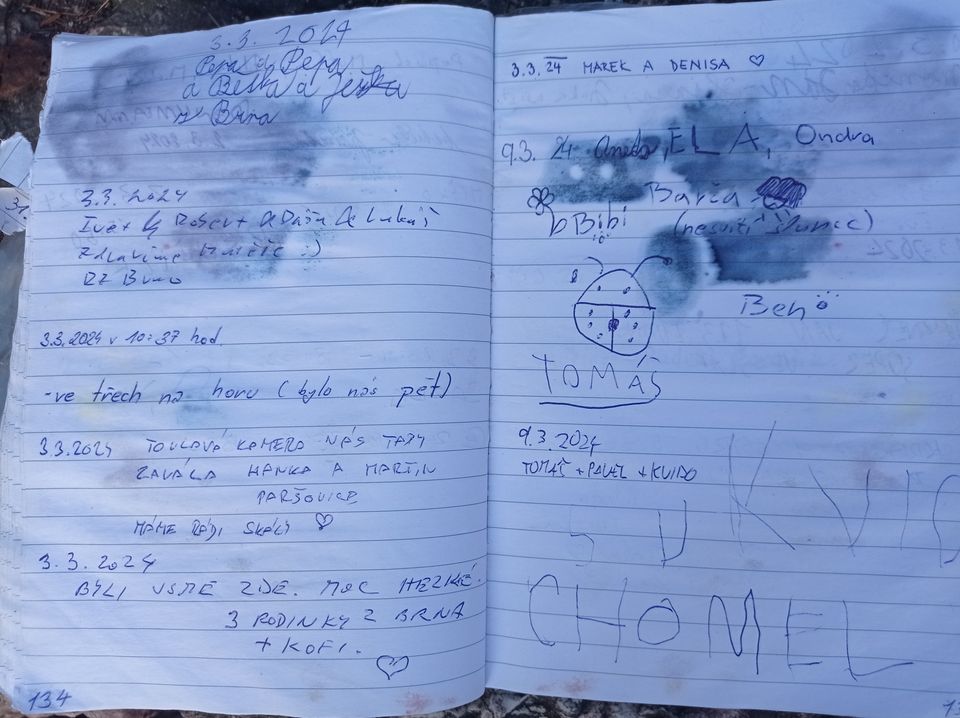 3.3. 2024
Pepa
a Bětka a Ješka
z Brna
3.3. 2024
Robert a Dáša a Lukáš
Zdravíme :)
z Brna
3.3.2024 v 10:37 hod.
-ve třech na horu (bylo nás pět)
3.3.2024 TOULAVÁ KAMERA NÁS TADY
ZAVÁLA HANKA A MARTIN
PARŠOVICE
MÁME RÁDI SKÁLY ♡
3.3.2024
BYLI JSME ZDE. MOC HEZKÉ.
3 RODINKY Z BRNA
+ KOFI.
134
3.3. 24 MAREK A DENISA ♡
9.3. 24 Aneta, ELA, Ondra
Barča
Bibi (nesvítí slunce)
Ben
TOMÁŠ
9.3.2024
TOMÁŠ + PAVEL + KVIDO
KVID
CHOMEL